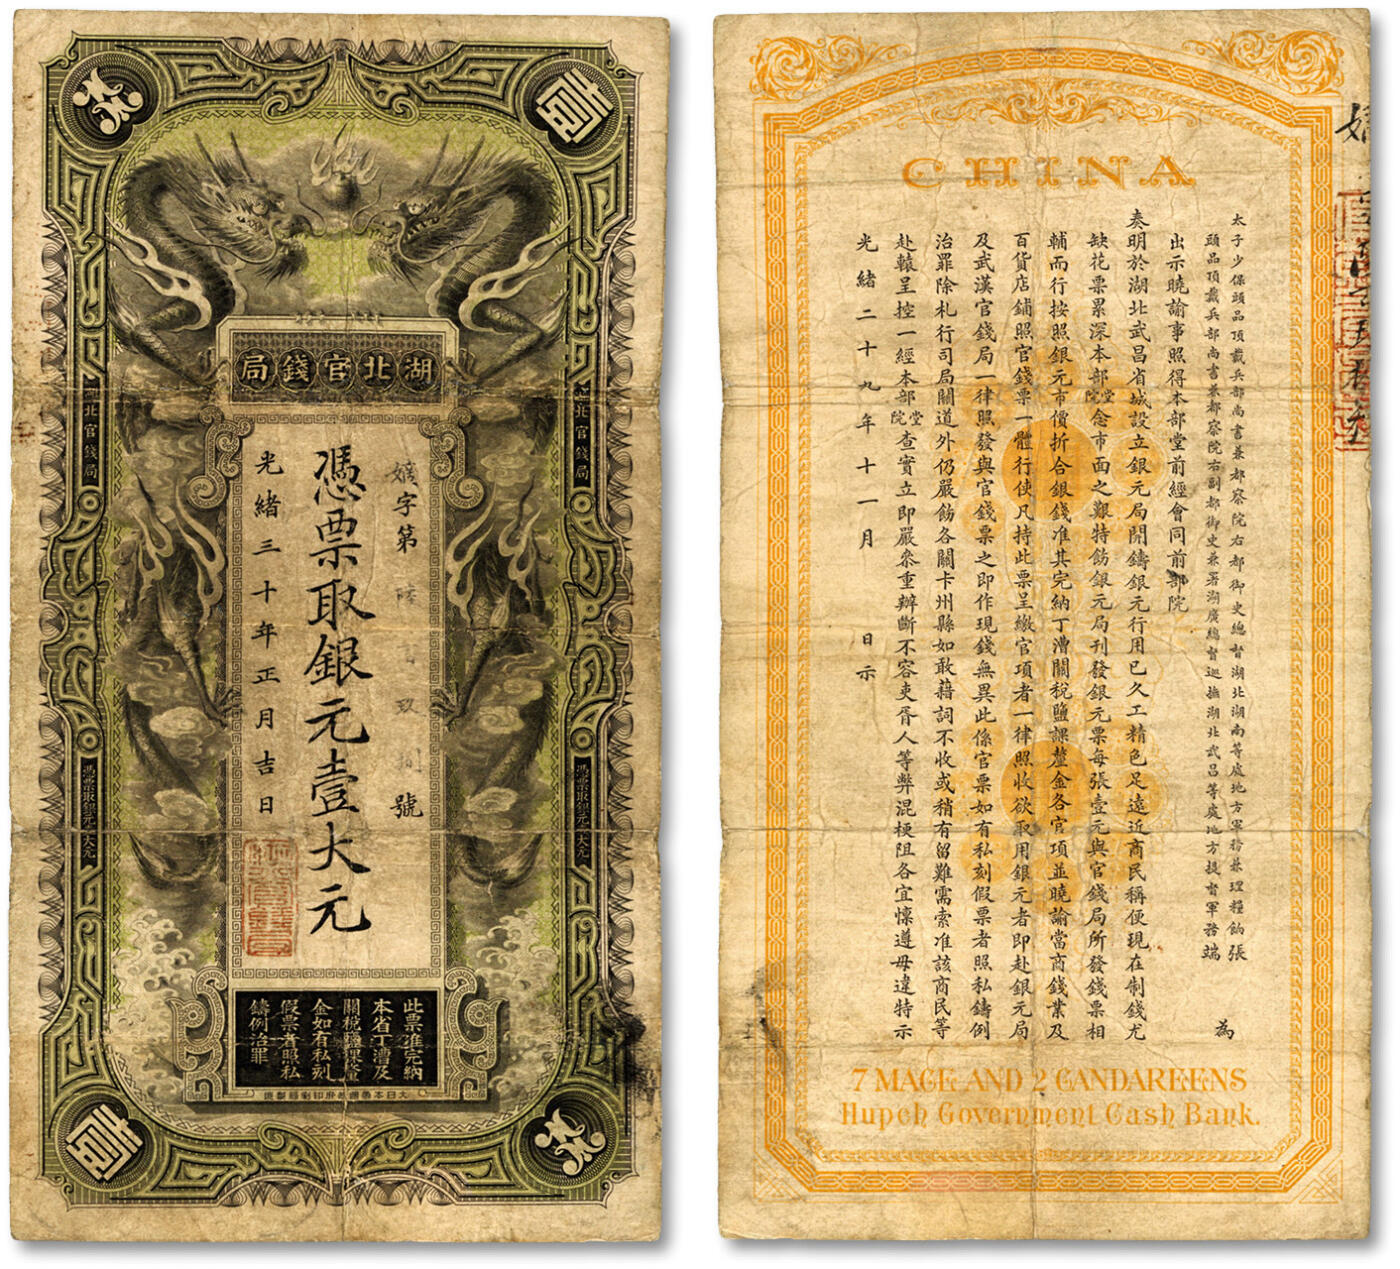 壹
元
湖北官錢局
湖北官錢局
湖北官錢局
字第
號
憑票取銀元壹大元
光緒三十年正月吉日
憑票取銀元壹大元
憑票取銀元壹大元
此票准完納
本省丁漕及
關稅鹽課釐
金如有私刻
假票者照私
鑄例治罪
大日本帝國政府印刷局製造
壹
元
CHINA
太子少保頭品頂戴兵部尚書兼都察院右都御史總督湖北湖南等處地方軍務兼理糧餉張
頭品頂戴兵部尚書兼都察院右副都御史兼署湖廣總督巡撫湖北武昌等處地方提督軍務端
為
出示曉諭事照得本部堂前經會同前部院
奏明於湖北武昌省城設立銀元局開鑄銀元行用已久工精色足遠近商民稱便現在制錢尤
缺花票累深本部堂院念市面之艱特飭銀元局刊發銀元票每張壹元與官錢局所發錢票相
輔而行按照銀元市價折合銀錢准其完納丁漕關稅鹽課釐金各官項並曉諭當商錢業及
百貨店鋪照官錢票一體行使凡持此票呈繳官項者一律照收欲取用銀元者即赴銀元局
及武漢官錢局一律照發與官錢票之即作現錢無異此係官票如有私刻假票者照私鑄例
治罪除札行司局關道外仍嚴飭各關卡州縣如敢藉詞不收或稍有留難需索准該商民等
赴轅呈控一經本部堂院查實立即嚴叅重辦斷不容吏胥人等弊混梗阻各宜懍遵毋違特示
光緒二十九年十一月 日示
7 MACE AND 2 CANDAREENS
Hupeh Government Cash Bank.